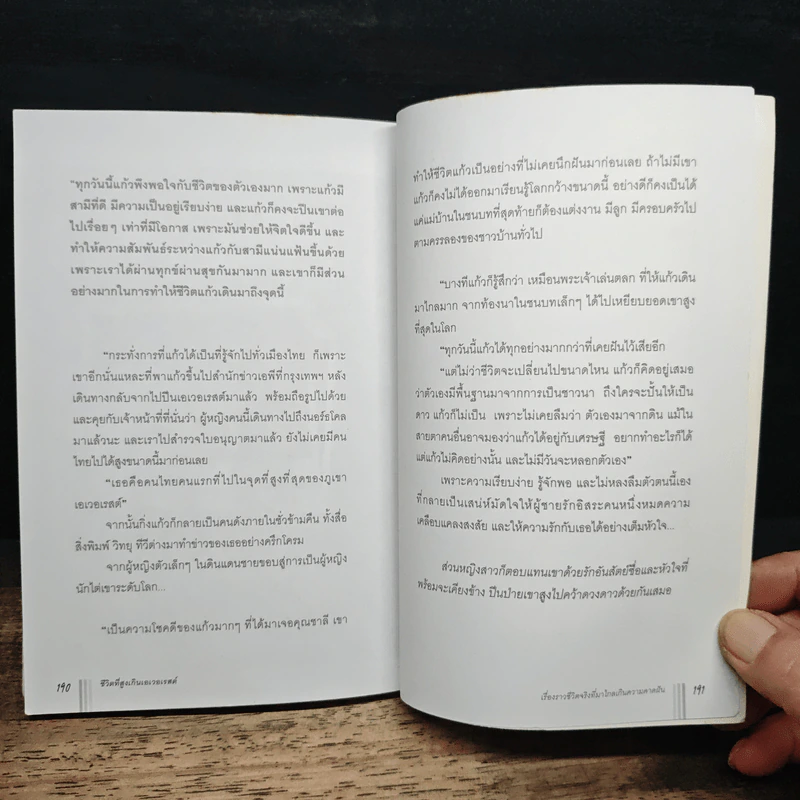 "ทุกวันนี้แก้วพึงพอใจกับชีวิตของตัวเองมาก เพราะแก้วมี
สามีที่ดี มีความเป็นอยู่เรียบง่าย และแก้วก็คงจะปีนเขาต่อ
ไปเรื่อยๆ เท่าที่มีโอกาส เพราะมันช่วยให้จิตใจดีขึ้น และ
ทำให้ความสัมพันธ์ระหว่างแก้วกับสามีแน่นแฟ้นขึ้นด้วย
เพราะเราได้ผ่านทุกข์ผ่านสุขกันมามาก และเขาก็มีส่วน
อย่างมากในการทำให้ชีวิตแก้วเดินมาถึงจุดนี้
"กระทั่งการที่แก้วได้เป็นที่รู้จักไปทั่วเมืองไทย ก็เพราะ
เขาอีกนั่นแหละที่พาแก้วขึ้นไปสำนักข่าวเอพีที่กรุงเทพฯ หลัง
เดินทางกลับจากไปปีนเอเวอเรสต์มาแล้ว พร้อมถือรูปไปด้วย
และคุยกับเจ้าหน้าที่ที่นั่นว่า ผู้หญิงคนนี้เดินทางไปถึงนอร์ธโคล
มาแล้วนะ และเราไปสำรวจใบอนุญาตมาแล้ว ยังไม่เคยมีคน
ไทยไปได้สูงขนาดนี้มาก่อนเลย
"เธอคือคนไทยคนแรกที่ไปในจุดที่สูงที่สุดของภูเขา
เอเวอเรสต์"
จากนั้นกิ่งแก้วก็กลายเป็นคนดังภายในชั่วข้ามคืน ทั้งสื่อ
สิ่งพิมพ์ วิทยุ ทีวีต่างมาทำข่าวของเธออย่างครึกโครม
จากผู้หญิงตัวเล็กๆ ในดินแดนชายขอบสู่การเป็นผู้หญิง
นักไต่เขาระดับโลก...
"เป็นความโชคดีของแก้วมากๆ ที่ได้มาเจอคุณซาลี เขา
190 ชีวิตที่สูงเกินเอเวอเรสต์
ทำให้ชีวิตแก้วเป็นอย่างที่ไม่เคยนึกฝันมาก่อนเลย ถ้าไม่มีเขา
แก้วก็คงไม่ได้ออกมาเรียนรู้โลกกว้างขนาดนี้ อย่างดีก็คงเป็นได้
แค่แม่บ้านในชนบทที่สุดท้ายก็ต้องแต่งงาน มีลูก มีครอบครัวไป
ตามครรลองของชาวบ้านทั่วไป
"บางทีแก้วก็รู้สึกว่า เหมือนพระเจ้าเล่นตลก ที่ให้แก้วเดิน
มาไกลมาก จากท้องนาในชนบทเล็กๆ ได้ไปเหยียบยอดเขาสูง
ที่สุดในโลก
"ทุกวันนี้แก้วได้ทุกอย่างมากกว่าที่เคยฝันไว้เสียอีก
"แต่ไม่ว่าชีวิตจะเปลี่ยนไปขนาดไหน แก้วก็คิดอยู่เสมอ
ว่าตัวเองมีพื้นฐานมาจากการเป็นชาวนา ถึงใครจะปั้นให้เป็น
ดาว แก้วก็ไม่เป็น เพราะไม่เคยลืมว่า ตัวเองมาจากดิน แม้ใน
สายตาคนอื่นอาจมองว่าแก้วได้อยู่กับเศรษฐี อยากทำอะไรก็ได้
แต่แก้วไม่คิดอย่างนั้น และไม่มีวันจะหลอกตัวเอง"
เพราะความเรียบง่าย รู้จักพอ และไม่หลงลืมตัวตนนี้เอง
ที่กลายเป็นเสน่ห์มัดใจให้ผู้ชายรักอิสระคนหนึ่งหมดความ
เคลือบแคลงสงสัย และให้ความรักกับเธอได้อย่างเต็มหัวใจ...
ส่วนหญิงสาวก็ตอบแทนเขาด้วยรักอันสัตย์ซื่อและหัวใจที่
พร้อมจะเคียงข้าง ปีนป่ายเขาสูงไปคว้าดวงดาวด้วยกันเสมอ
เรื่องราวชีวิตจริงที่มาไกลเกินความคาดฝัน 191